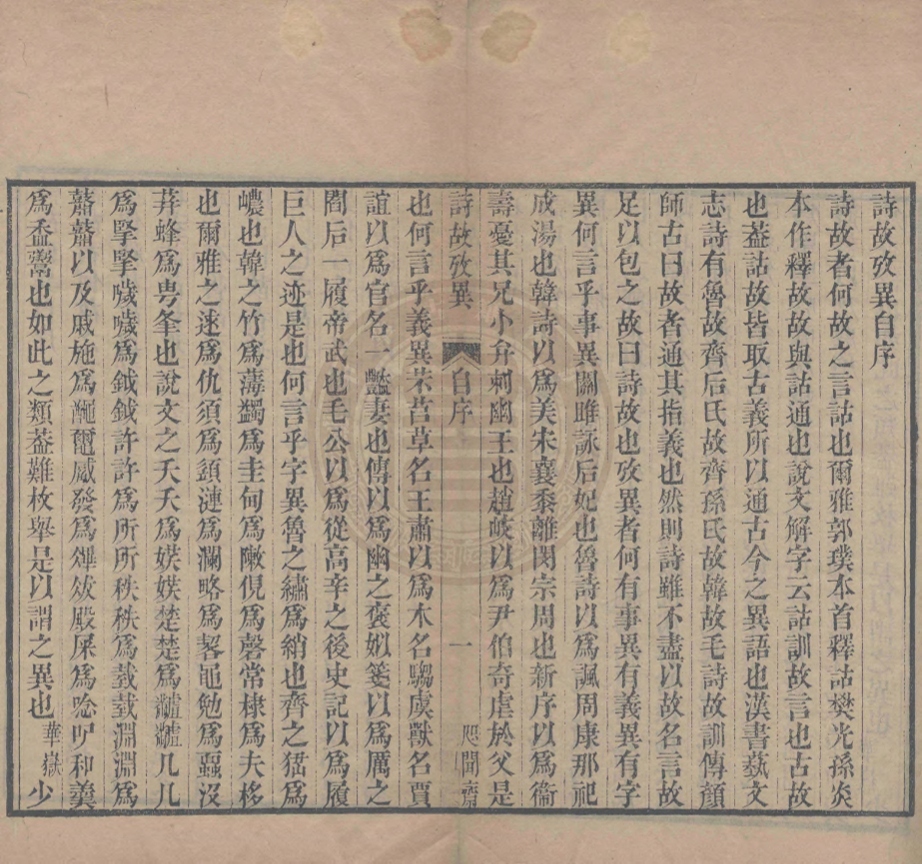 詩故攷異自序
詩故者何故之言詁也爾雅郭璞本首釋詁樊光孫炎
本作釋故故與詁通也說文解字云詁訓故言也古故
也葢詁故皆取古義所以通古今之異語也漢書藝文
志詩有魯故齊后氏故齊孫氏故韓故毛詩故訓傳顏
師古曰故者通其指義也然則詩雖不盡以故名言故
足以包之故曰詩故也攷異者何有事異有義異有字
異何言乎事異關雎詠后妃也魯詩以為諷周康那祀
成湯也韓詩以為美朱襄黍離閔宗周也新序以為衞
壽憂其兄小弁刺幽王也趙岐以為尹伯奇虐於父是
詩故攷異 自序 一 咫聞齋
也何言乎義異芣苢草名王肅以為木名騶虞獸名賈
誼以為官名一豔妻也傳以為幽之褒姒箋以為厲之
閻后一履帝武也毛公以為從高辛之後史記以為履
巨人之迹是也何言乎字異魯之繡為綃也齊之猺為
嶩也韓之竹為薄蠲為圭甸為敶俔為磬常棣為夫栘
也爾雅之逑為仇須為頷漣為瀾略為䂮黽勉為蠠沒
荓蜂為甹夆也說文之夭夭為媄媄楚楚為𪓐𪓐几几
為掔掔噦噦為鉞鉞許許為所所秩秩為𢧜𢧜淵淵為
鼘鼘以及戚施為𪓰𪓿觱發為㓖冹殿屎為唸㕧和羹
為盉鬻也如此之類葢難枚舉是以謂之異也華嶽少